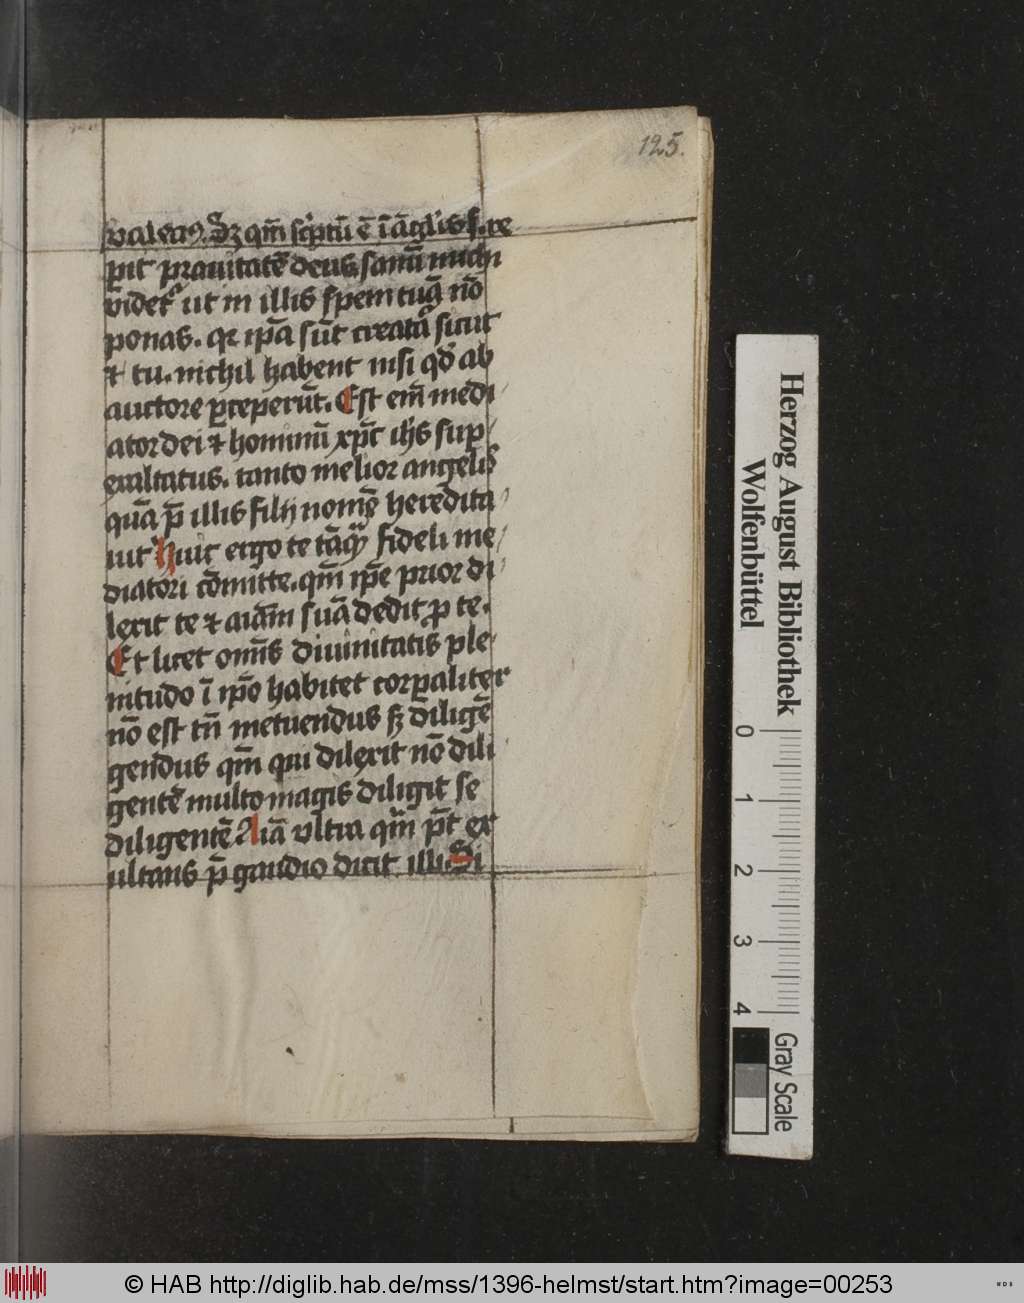 125.
valeas. Sz qm̄ sc̓ptū ē ī āglis s. re
p̱it prauitatē deus. sanū michi
videt᷑ ut in illis spem tuā nō
ponas. qr ip̄a sūt creata sicut
⁊ tu. nichil habent nisi qd̄ ab
auctore p̱ceperūt. Est em̄ medi
ator dei ⁊ hominū xp̄c ih̄s sup̱
exaltatus. tanto melior angelis
quā p̄ illis filij nomē heredita
uit Huic ergo te tāq̄ fideli me
diatori cōmitte. qm̄ ip̄e prior di
lexit te ⁊ aīam suā dedit ꝓ te.
Et licet om̄is diuinitatis ple
nitudo ī ip̄o habitet corp̱aliter
nō est tn̄ metuendus sꝫ diligē
gendus qm̄ qui dilexit nō dili
gentē multo magis diligit se
diligentē Aīa vltra qm̄ p̄t ex
ultans p̄ gaudio dicit illi Si
Herzog August Bibliothek
Wolfenbüttel
0 1 2 3 4
Gray Scale
© HAB http://diglib.hab.de/mss/1396-helmst/start.htm?image=00253
WDB